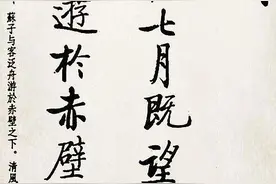 七月既望
遊於赤壁
蘇子与客泛舟游於赤壁之下。清風